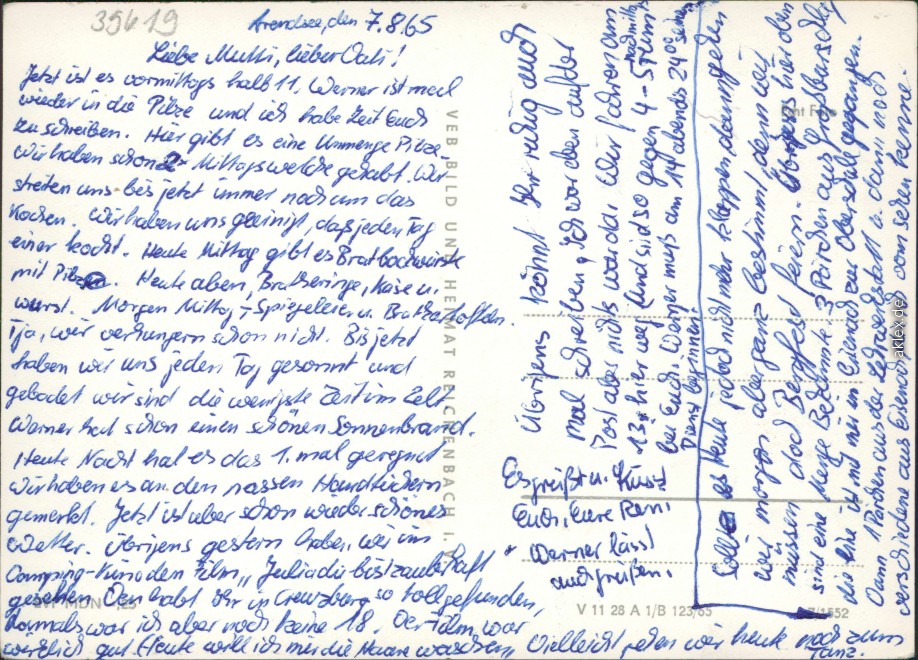 39619
Arendsee, den 7.8.65
Liebe Mutti, lieber Vati!
Jetzt ist es vormittags halb 11. Werner ist mal
wieder in die Pilze und ich habe Zeit Euch
zu schreiben. Hier gibt es eine Unmenge Pilze,
wir haben schon 2 Mittagswelche gehabt. Wir
streiten uns bis jetzt immer noch um das
Kochen. Wir haben uns geeinigt, daß jeden Tag
einer kocht. Heute Mittag gibt es Bratbockwürste
mit Pilzen. Heute abend, Bratheringe, Käse u.
wurst. - Morgen Mittag - Spiegeleier u. Bratkartoffeln.
Tja, wir verhungern schon nicht. Bis jetzt
haben wir uns jeden Tag gesonnt und
gebadet wir sind die wenigste Zeit im Zelt
Werner hat schon einen schönen Sonnenbrand.
Heute Nacht hat es das 1. mal geregnet
wir haben es an den nassen Handtüchern
gemerkt. Jetzt ist aber schon wieder schönes
Wetter. Übrigens gestern haben wir im
Camping-Kino den Film "Julia du bist zauberhaft
gesehen. Den habt Ihr in Creuzburg so toll gefunden,
damals war ich aber noch keine 18. Der Film war
wirklich gut. Heute will ich mir die Haare waschen. Vielleicht gehen wir heute noch zum
Tanz.
Übrigens könnt Ihr ruhig auch
mal schreiben, ich war eben auf der
Post aber nichts war da. Wir fahren am
13. hier weg und sind so gegen 4-5 Uhr nachmitt.
bei Euch. Werner muß am 14. abends 24°° seinen
Dienst beginnen.
Sollte es heute jedoch nicht mehr klappen, dann gehen
wir morgen aber ganz bestimmt, denn wir
müssen doch Bergfest feiern. - Übrigens hier oben
sind eine Menge Bekannte, 3 Pärchen aus
die eine ist mit mir in Eisenach zur Oberschule gegangen.
Dann 1 Pärchen aus der Lehrwerkstatt u. dann noch
verschiedene aus Eisenach die ich vom sehen kenne.
Es grüßt u. küsst
Euch, Eure Reni
Werner lässt
auch grüßen.
VEB BILD UND HEIMAT REICHENBACH I. V.
Echt Foto
V 11 28 A 1/B 123/65